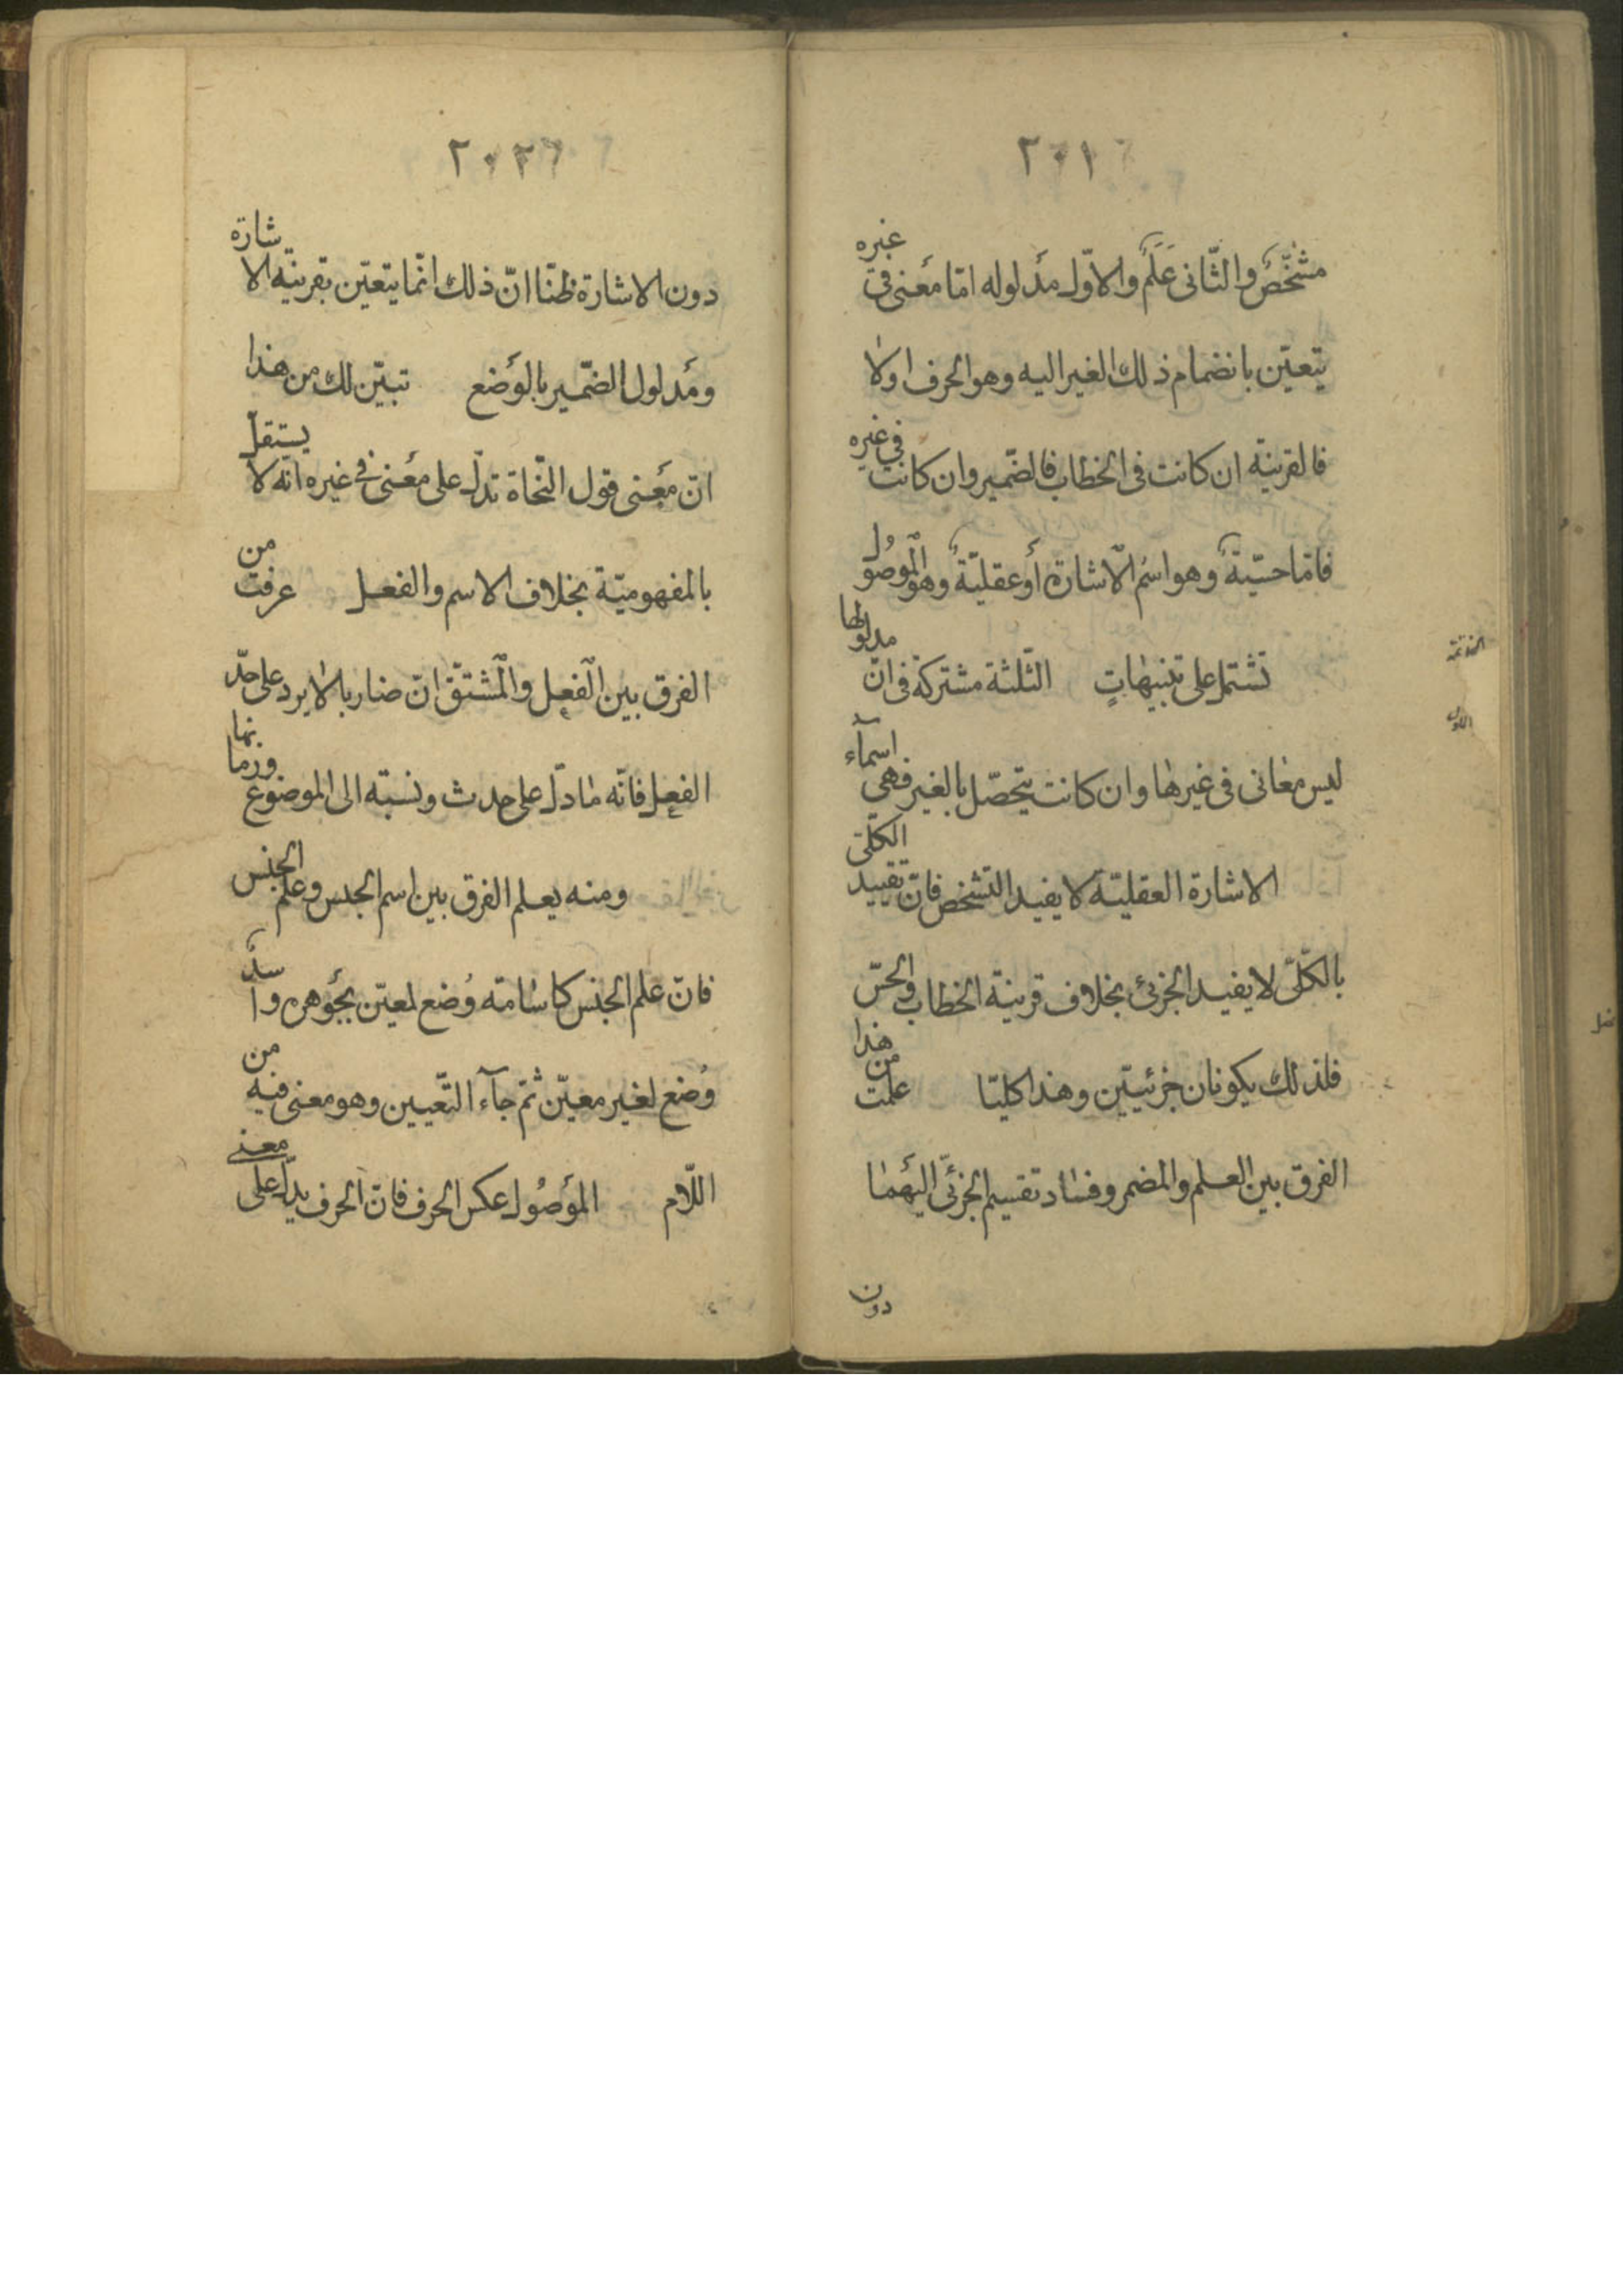 ٢٠١
مشخّصٌ والثّانى عَلَمٌ والاوّل مدلوله امّا معنى فى غيره
يتعيّن بانضمام ذلك الغير اليه وهو الحرف اولا
فالقرينة ان كانت فى الخطاب فالضّمير وان كانت فى غيره
فامّا حسّيّةٌ وهو اسمُ الاشارة أو عقليّةٌ وهو الموصُولُ
الخاتمة
تشتمل على تنبيهاتٍ الثّلثة مشتركة فى انّ مدلولها
الاول
ليس معانى فى غيرها وان كانت يتحصّل بالغير فهى اسمآء
الاشارة العقليّة لا يفيد التّشخّص فانّ تقييد الكلّىّ
بالكلّىّ لا يفيد الجزئى بخلاف قرينة الخطاب والحسّ
فلذلك يكونان جزئيّين وهذا كليّا علمت من هذا
الفرق بين العلم والمضمر وفساد تقسيم الجزئىّ اليهما
دون
٢٠٢
دون الاشارة ظنّا انّ ذلك انّما يتعيّن بقرينة الاشارة
ومدلول الضّمير بالوضع تبيّن لك من هذا
انّ معنى قول النّحاة تدلّ على معنى فى غيره انّه لا يستقلّ
بالمفهوميّة بخلاف الاسم والفعل عرفت من
الفرق بين الفعل والمشتقّ انّ ضاربا لا يرد على حدّ
الفعل فانّه ما دلّ على حدث ونسبة الى الموضوع وزمانها
ومنه يعلم الفرق بين اسم الجنس وعلم الجنس
فانّ علم الجنس كاسامة وُضع لمعيّن بجوهره واسدٌ
وُضع لغير معيّن ثمّ جآء التّعيين وهو معنى فيه من
اللّام الموصُول عكس الحرف فانّ الحرف يدلّ على معنى